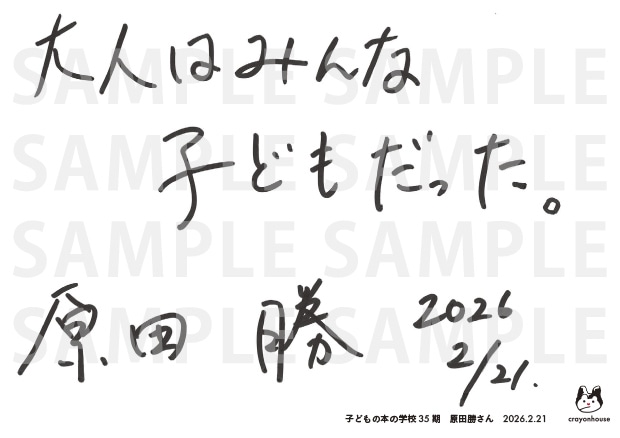 大人はみんな
子どもだった。
原田 勝 2026 2/21.
SAMPLE SAMPLE
SAMPLE SAMPLE
SAMPLE SAMPLE
SAMPLE SAMPLE
子どもの本の学校35期 原田勝さん 2026.2.21
crayonhouse